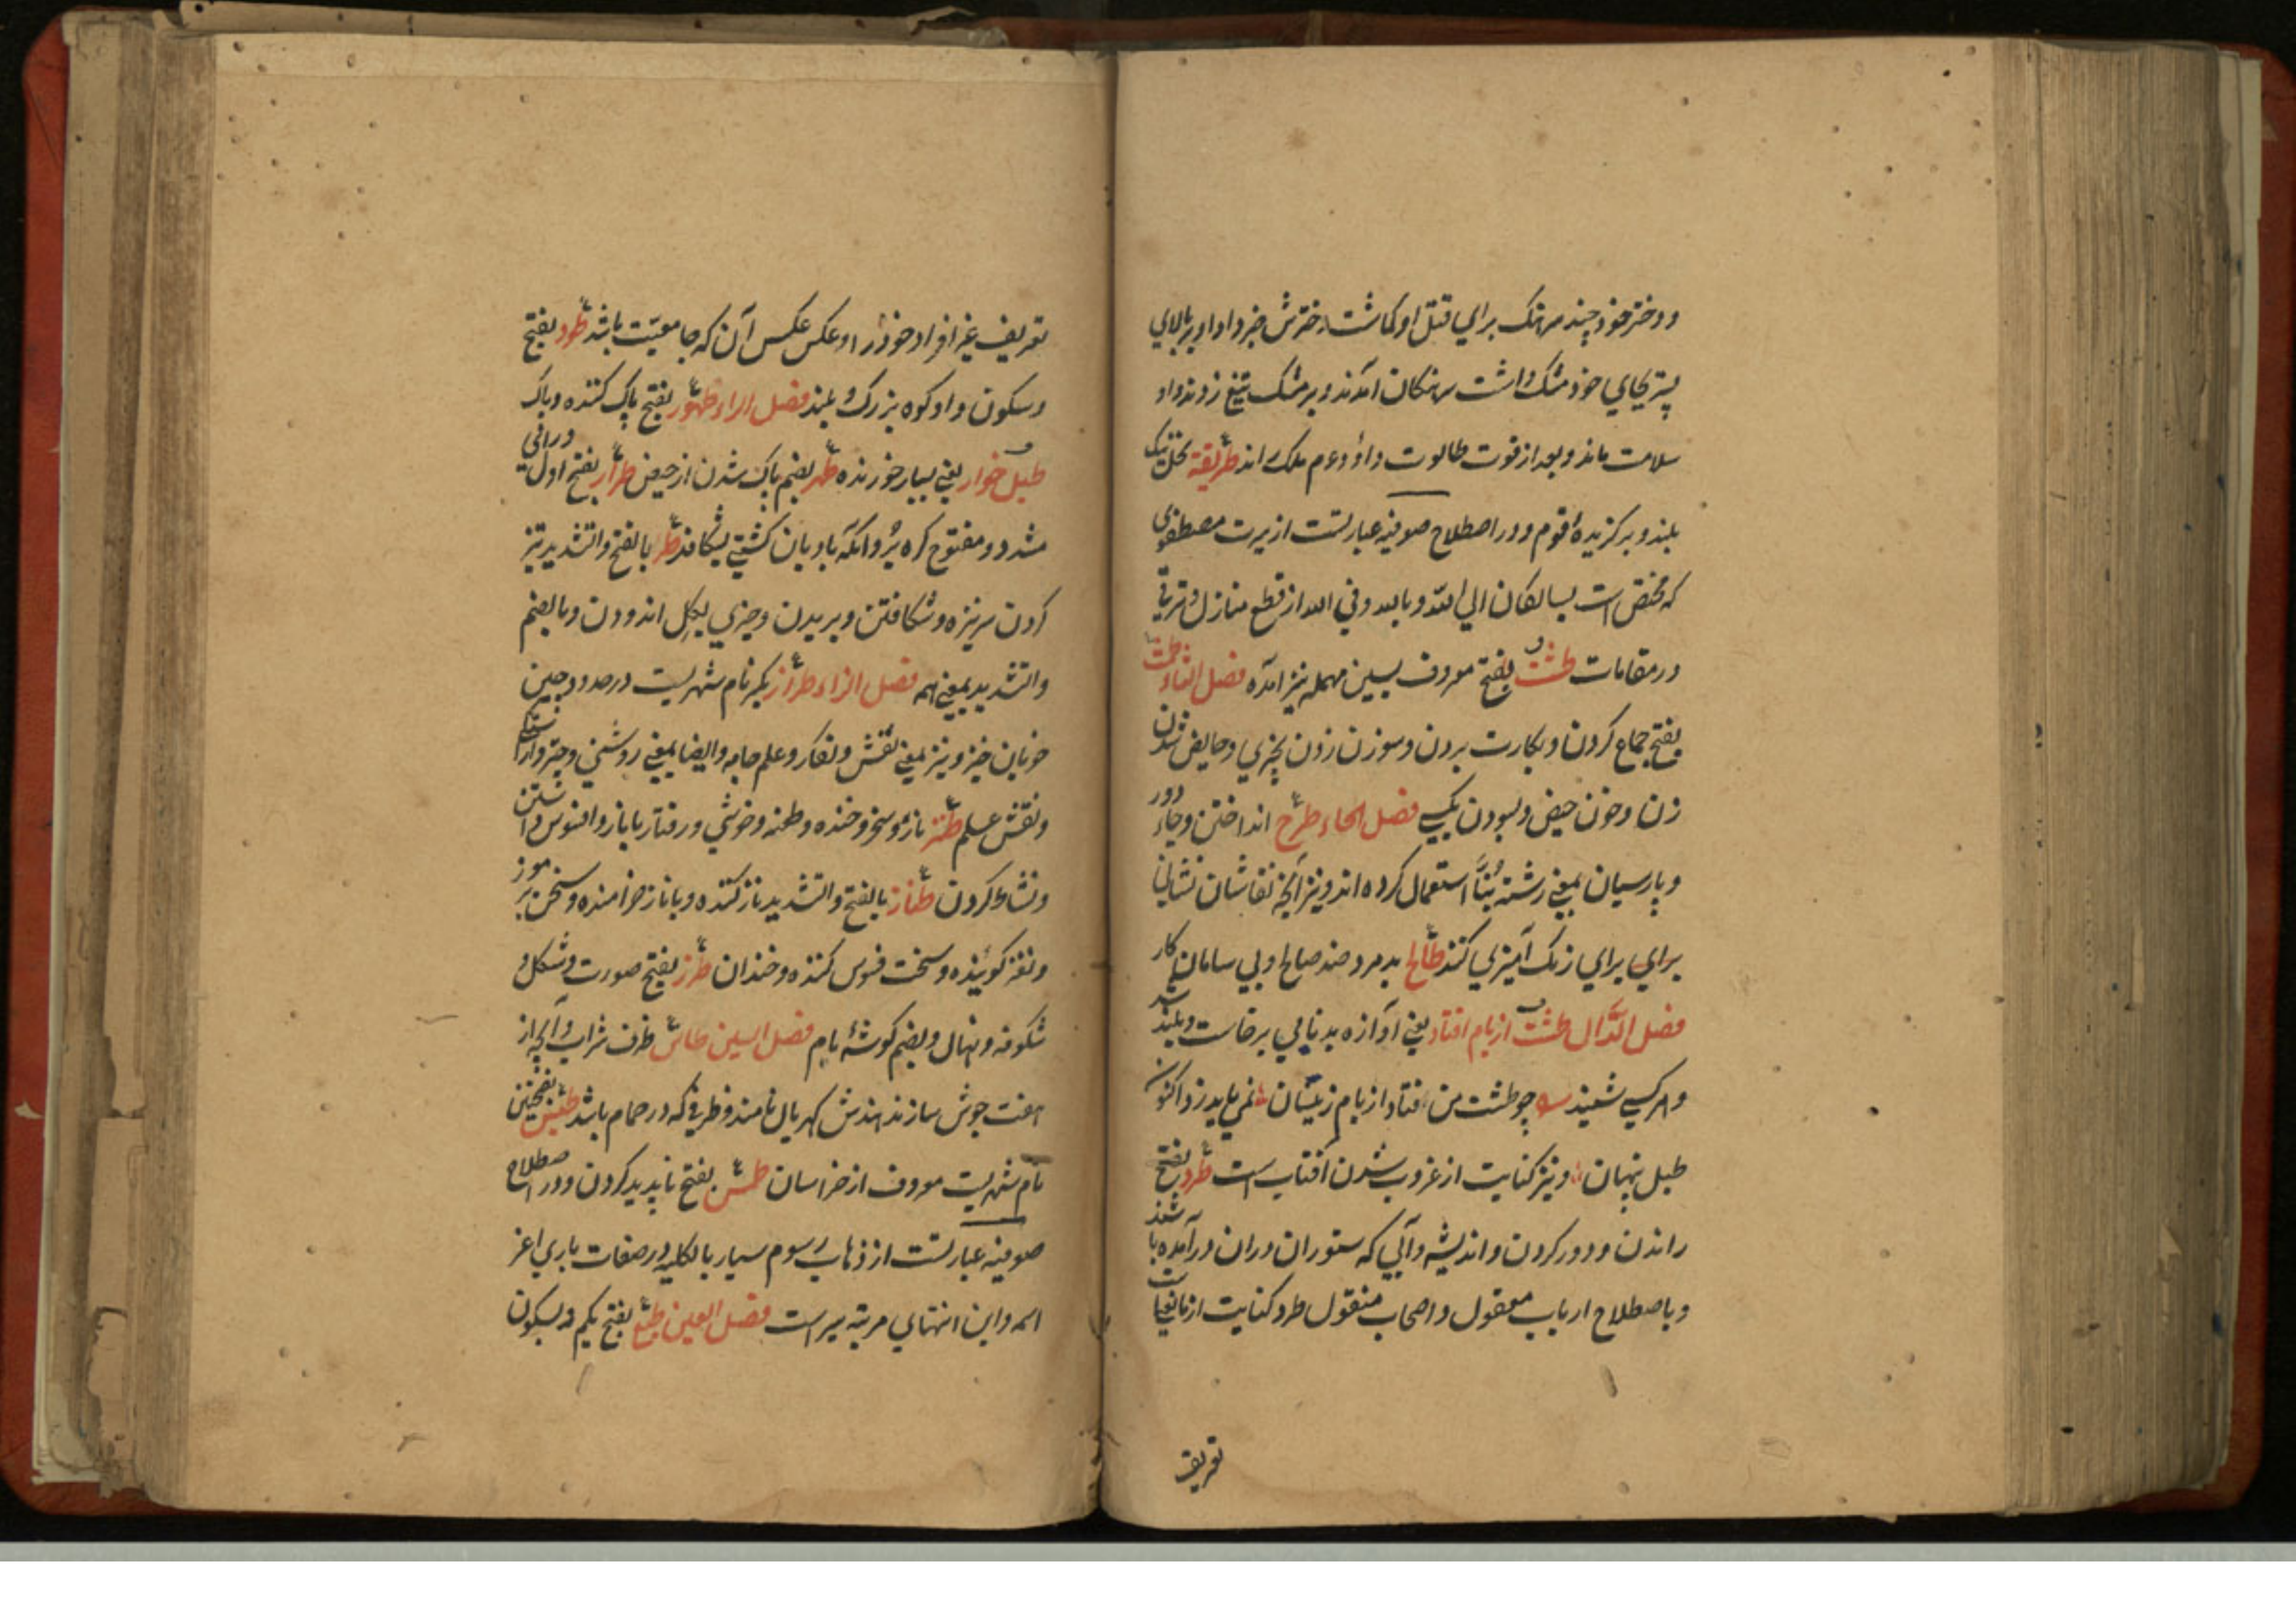 و دختر خود چند سرهنگ براي قتل او گماشت دخترش خبر داد او بر بالاي
بستر بجاي خود مشك داشت سرهنگان آمدند و بر مشك تيغ زدند و او
سلامت ماند و بعد از فوت طالوت داؤد عم ملك راند طريقة نخل نيك
بلند و بر گزيدۀ قوم و در اصطلاح صوفيه عبارتست از سيرت مصطفوي
كه مختص است بسالكان الي الله و بالله و في الله از قطع منازل و ترقي
در مقامات طشت بفتح معروف بسين مهمله نيز آمده فصل الثاء طمث
بفتح جماع كردن و بكارت بردن و سوزن زدن بچيزي و حايض شدن
زن و خون حيض و بسودن بكسي فصل الحاء طرح انداختن و جاء دور
و پارسيان بمعني رشتۀ بنّا استعمال كرده اند و نيز آنچه نقاشان نشاني
براي براي رنگ آميزي كنند طالح بد مرد ضد صالح و بي سامان كار
فصل الدّال طشت از بام افتاد يعني آوازه بدنامي برخاست و بلند شد
و هر كسي شنيد چو طشت من فتاد از بام زينسان نمي بايد زد اكنون
طبل پنهان و نيز كنايت از غروب شدن آفتاب است طرد بفتح
راندن و دور كردن و انديشه و آبي كه ستوران دران در آمده باشند
و باصطلاح ارباب معقول و اصحاب منقول طرد كنايت از مانعيت
تعريف
تعريف غير افراد خود را و عكس عكس آن كه جامعيّت باشد طود بفتح
و سكون واو كوه بزرگ و بلند فصل الراء طهور بفتح پاك كننده و پاك
طبل خوار يعني بسيار خورنده طهر بضم پاك شدن از حيض طرار بفتح اول و راني
مشدد و مفتوح كره بُر و آنكه بادبان كشتي بشكافد طر بالفتح و التشديد تيز
كردن سر نيزه و شكافتن و بريدن و چيزي بگل اندودن و بالضم
و التشديد بمعني همه فصل الزاء طراز بكسر نام شهريست در حدود چين
خوبان خيز و نيز بمعني نقش و نگار و علم جامه و ايضا بمعني روشني و چيز و آراستگي
و نقش علم طنز ناز و سخره و خنده و طعنه و خوشي و رفتار با ناز و افسوس داشتن
و نشاط كردن طناز بالفتح و التشديد ناز كننده و با ناز خرامنده و سخن بر موز
و نغز گوينده و سخت فسوس كننده و خندان طرز بفتح صورت و شكل و
شكوفه و نهال و بضم گوشۀ بام فصل السين طاس ظرف شراب و آنچه از
هفت جوش سازند هندش گهريال نامند و ظرفي كه در حمام باشد طبس بفتحتين
نام شهريست معروف از خراسان طمس بفتح ناپديد كردن و در اصطلاح
صوفيه عبارتست از ذهاب رسوم سيار بالكليه در صفات باري اعز
اسمه و اين انتهاي مرتبه سير است فصل العين طبع بفتح يكم و بسكون